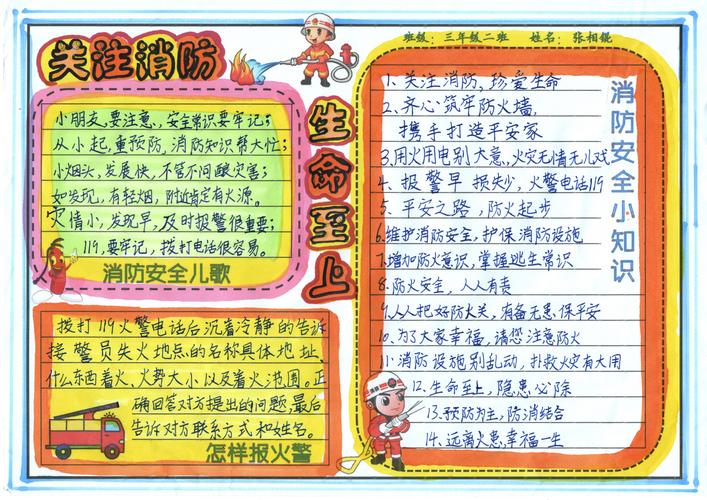 关注消防
生命至上
班级：三年级二班 姓名：张相锟
小朋友，要注意，安全常识要牢记；
从小起，重预防，消防知识帮大忙；
小烟头，发展快，不管不问酿灾害；
如发现，有轻烟，附近肯定有火源。
灾情小，发现早，及时报警很重要；
119，要牢记，拨打电话很容易。
消防安全儿歌
拨打119火警电话后沉着冷静的告诉
接警员失火地点的名称具体地址，
什么东西着火、火势大小以及着火范围。正
确回答对方提出的问题，最后
告诉对方联系方式和姓名。
怎样报火警
消防安全小知识
1、关注消防，珍爱生命
2、齐心筑牢防火墙，
携手打造平安家
3、用火用电别大意，火灾无情无儿戏
4、报警早 损失少，火警电话119
5、平安之路，防火起步
6、维护消防安全，护保消防设施
7、增加防火意识，掌握逃生常识
8、防火安全，人人有责
9、人人把好防火关，有备无患保平安
10、为了大家幸福，请您注意防火
11、消防设施别乱动，扑救火灾有大用
12、生命至上，隐患必除
13、预防为主，防消结合
14、远离火患，幸福一生